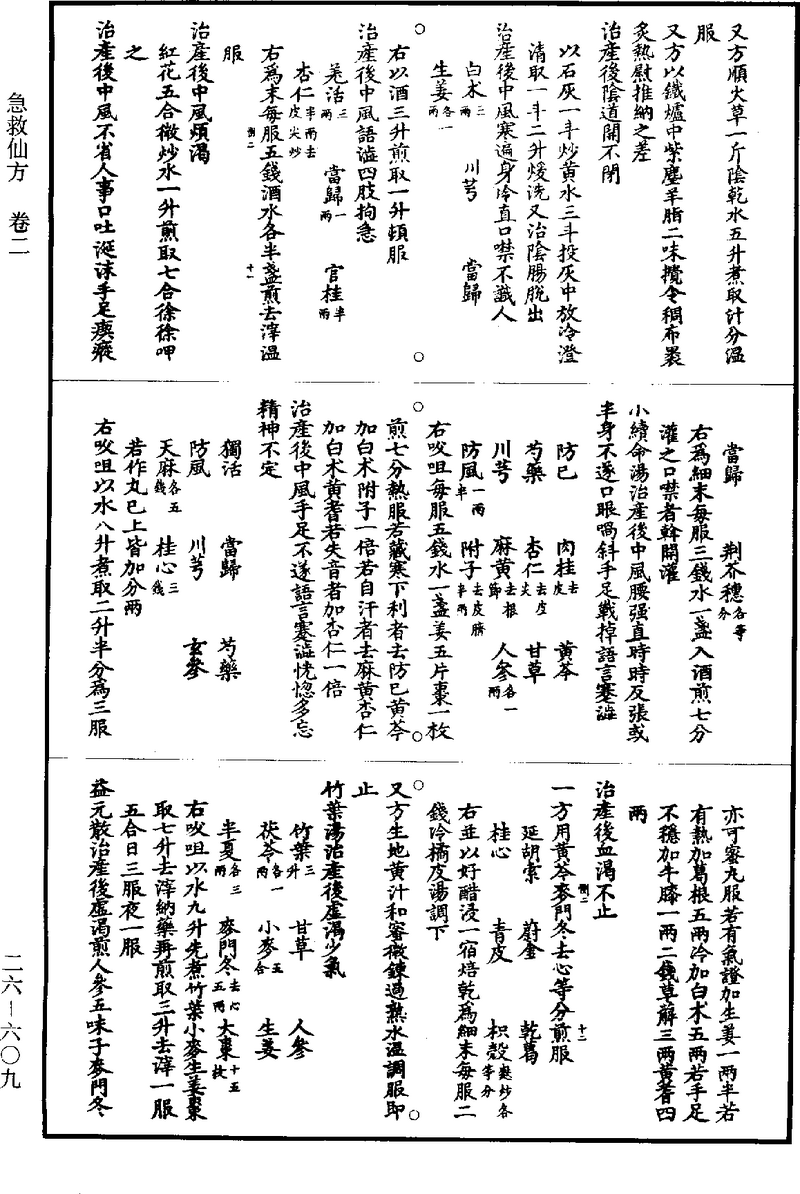 急救仙方 卷二
二六－六〇九
又方順火草一斤陰乾水五升煮取汁分溫
服
又方以鐵爐中紫塵羊脂二味攪令稠布裹
炙熱熨推納之差
治產後陰道開不閉
以石灰一斗炒黃水三斗投灰中放冷澄
清取一斗二升煖洗又治陰腸脫出
治產後中風寒遍身冷直口噤不識人
白朮三兩 川芎 當歸
生姜各一兩
右以酒三升煎取一升頓服
治產後中風語澁四肢拘急
羌活三兩 當歸一兩 官桂半兩
杏仁半兩去皮尖炒
右爲末每服五錢酒水各半盞煎去滓溫
服
卷二
十一
治產後中風煩渴
紅花五合微炒水一升煎取七合徐徐呷
之
治產後中風不省人事口吐涎沫手足瘈瘲
當歸 荆芥穗各等分
右爲細末每服三錢水一盞入酒煎七分
灌之口噤者斡開灌
小續命湯治產後中風腰强直時時反張或
半身不遂口眼喎斜手足戰掉語言蹇澁
防已 肉桂去皮 黃芩
芍藥 杏仁去皮尖 甘草
川芎 麻黃去根節 人參各一兩
防風一兩半 附子去皮臍半兩
右㕮咀每服五錢水一盞姜五片棗一枚
煎七分熱服若藏寒下利者去防已黃芩
加白朮附子一倍若自汗者去麻黃杏仁
加白朮黃耆若失音者加杏仁一倍
治產後中風手足不遂語言蹇澁恍惚多忘
精神不定
獨活 當歸 芍藥
防風 川芎 玄參
天麻各五錢 桂心三錢
若作丸已上皆加分兩
右㕮咀以水八升煮取二升半分爲三服
亦可蜜丸服若有氣證加生姜一兩半若
有熱加葛根五兩冷加白朮五兩若手足
不穩加牛膝一兩二錢萆薢三兩黃耆四
兩
治產後血渴不止
一方用黃芩麥門冬去心等分煎服
卷二
十二
延胡索 蔚金 乾葛
桂心 青皮 枳殼麩炒各等分
右並以好醋浸一宿焙乾爲細末每服二
錢冷橘皮湯調下
又方生地黃汁和蜜微鍊過熱水溫調服即
止
竹葉湯治產後虛渴少氣
竹葉三升 甘草 人參
茯苓各一兩 小麥五合 生姜
半夏各三兩 麥門冬去心五兩 大棗十五枚
右㕮咀以水九升先煮竹葉小麥生姜棗
取七升去滓納藥再煎取三升去滓一服
五合日三服夜一服
益元散治產後虛渴煎人參五味子麥門冬